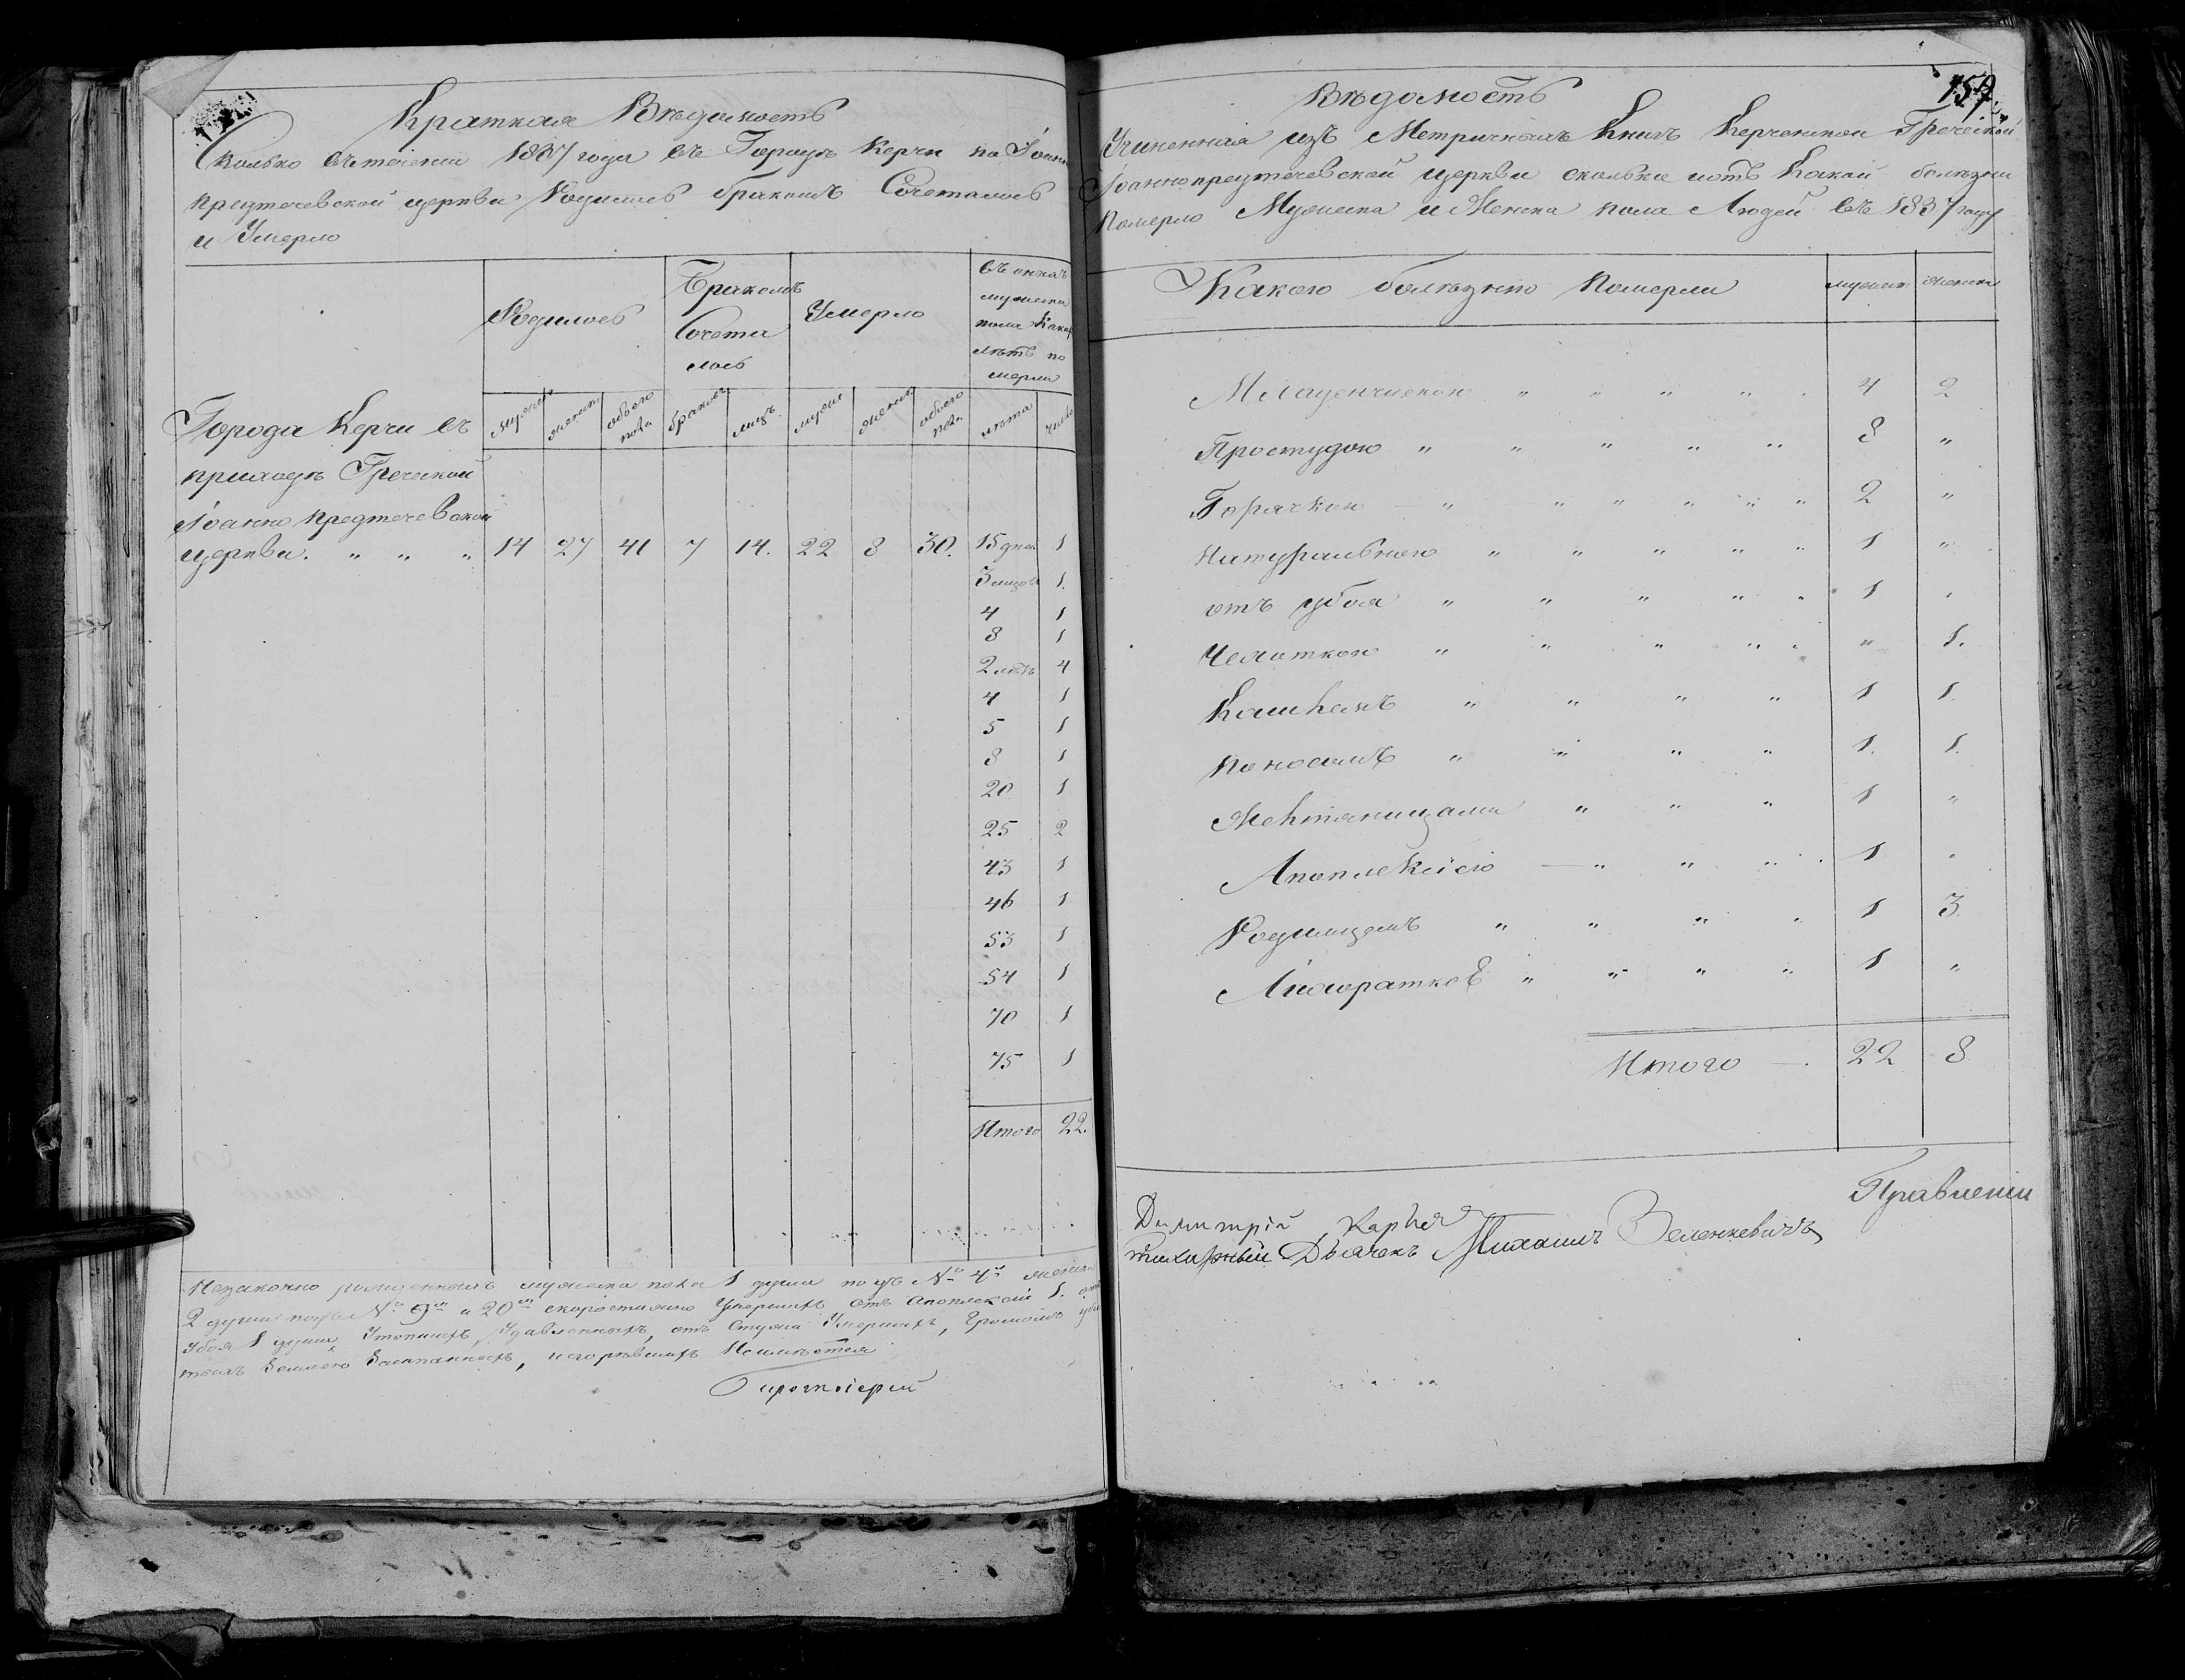 Краткая Вѣдомость
Сколько въ теченіи 1837 года въ Городѣ Керчи по Іоанно
предтечевской церкви Родилось бракомъ Сочеталось
и Умерло
Родилось
Бракомъ Сочета лось
Умерло
въ онихъ мужеска пола Какихъ лѣтъ по мерли
мужеск женск обоего пола браковъ лицъ мужес женск обоего пола лѣта число
Города Керчи въ
приходѣ Греческой
Іоанно предтечевской
церкви. " " " 14 27 41 7 14. 22 8 30. 15 дней 1
3 мицов 1.
4 1
8 1
2 лѣтъ 4
4 1
5 1
8 1
20 1
25 2
43 1
46 1
53 1
54 1
70 1
75 1
Итого 22.
Незаконно рожденныхъ мужеска пола 1 душа подъ № 4м женска
2 души подъ № 9м и 20м скоростижно Умершихъ отъ апоплексіи 1. отъ
убоя 1 душа, Утопшихъ, Удавленныхъ, отъ Стужи Умершихъ, Громомъ уби
тыхъ Землею Засыпанныхъ, и сгорѣвшихъ Неимѣется
Протоіерей
159
Вѣдомость
Учиненная изъ Метрическихъ Книгъ Керченской Греческой
Іоаннопредтечевской церкви сколько и отъ Какой болѣзни
Померло Мужеска и Женска пола Людей въ 1837 году
Какою болѣзнію Померли мужеск женска
Младенческою " " " " . 4 2
Простудою " " " " " 8 "
Горячкою — " " " " " " 2 "
Натуральною " " " " " 1 "
отъ убоя " " " " " 1 "
Чехоткою " " " " " " 1.
Кашлемъ " " " " 1 1.
Поносомъ " " " " 1. 1.
Желтяницами " " " 1 "
Апоплексіею — " " " 1 "
Родимцемъ " " " " 1 3.
" " " " 1 "
Итого — 22 8
Правленіи
Димитрій
Дьячекъ Михаилъ Зеленкевичъ